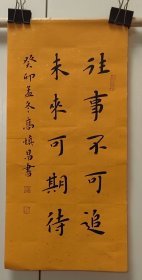 往事不可追
未來可期待
癸卯孟冬高填昌書